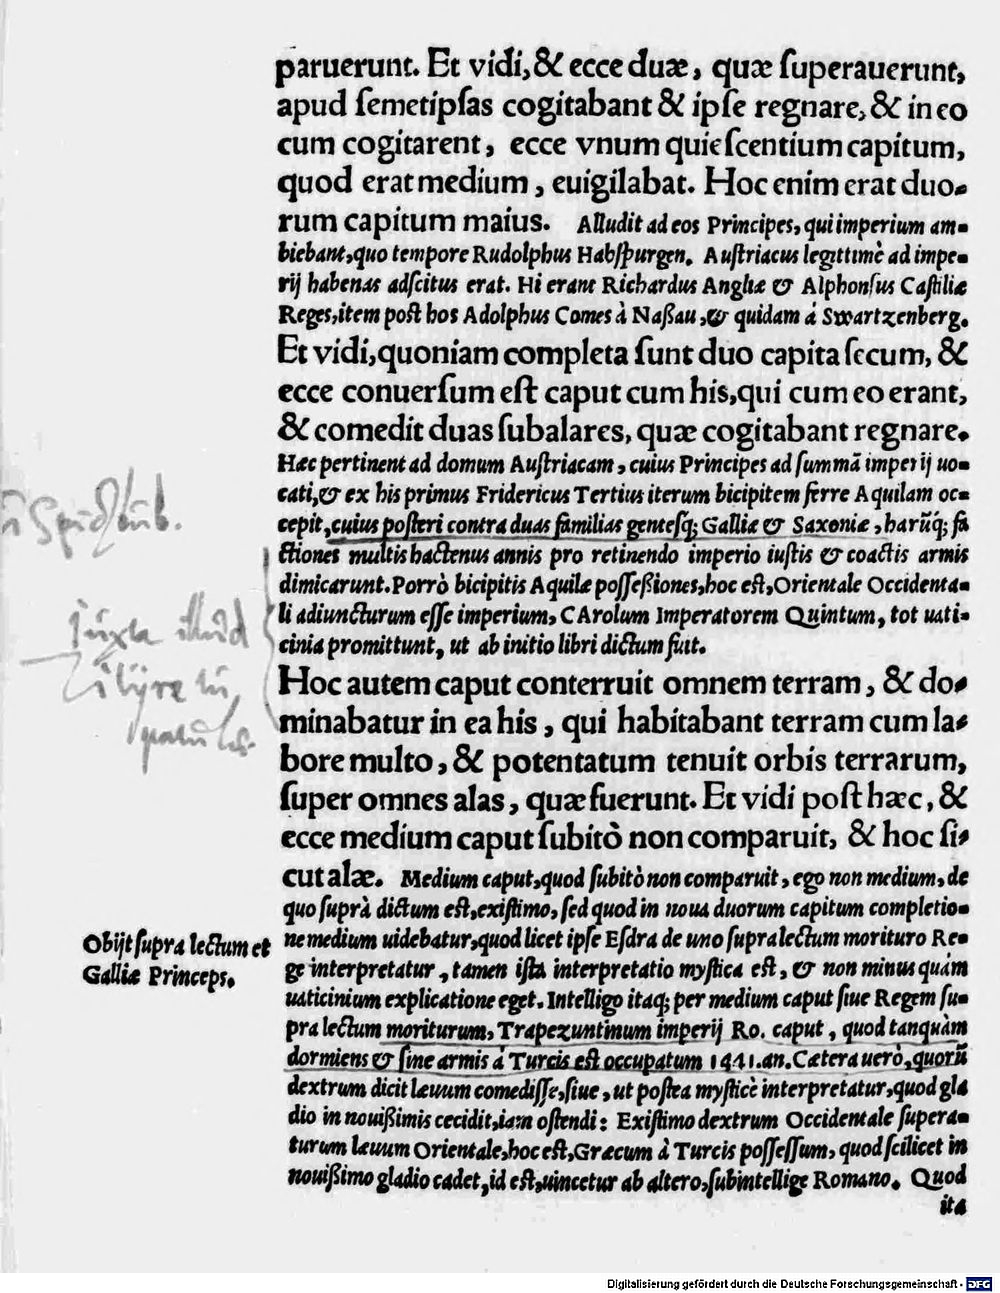 paruerunt. Et vidi, & ecce duæ, quæ ſuperauerunt,
apud ſemetipſas cogitabant & ipſe regnare, & in eo
cum cogitarent, ecce vnum quieſcentium capitum,
quod erat medium, euigilabat. Hoc enim erat duo-
rum capitum maius. Alludit ad eos Principes, qui imperium am-
biebant, quo tempore Rudolphus Habſpurgen. Auſtriacus legittimè ad impe-
rij habenas adſcitus erat. Hi erant Richardus Angliæ & Alphonſus Caſtiliæ
Reges, item poſt hos Adolphus Comes à Naßau, & quidam à Swartzenberg.
Et vidi, quoniam completa ſunt duo capita ſecum, &
ecce conuerſum eſt caput cum his, qui cum eo erant,
& comedit duas ſubalares, quæ cogitabant regnare.
Hæc pertinent ad domum Auſtriacam, cuius Principes ad ſummā imperij uo-
cati, & ex his primus Fridericus Tertius iterum bicipitem ferre Aquilam oc-
cepit, cuius poſteri contra duas familias genteſq; Galliæ & Saxoniæ, harūq; fa
ctiones multis hactenus annis pro retinendo imperio iuſtis & coactis armis
dimicarunt. Porrò bicipitis Aquilæ poſſeßiones, hoc eſt, Orientale Occidenta-
li adiuncturum eſſe imperium, CArolum Imperatorem Quintum, tot uati-
cinia promittunt, ut ab initio libri dictum fuit.
Hoc autem caput conterruit omnem terram, & do-
minabatur in ea his, qui habitabant terram cum la-
bore multo, & potentatum tenuit orbis terrarum,
ſuper omnes alas, quæ fuerunt. Et vidi poſt hæc, &
ecce medium caput ſubitò non comparuit, & hoc ſi-
cut alæ. Medium caput, quod ſubitò non comparuit, ego non medium, de
quo ſuprà dictum eſt, exiſtimo, ſed quod in noua duorum capitum completio-
ne medium uidebatur, quod licet ipſe Eſdra de uno ſupra lectum morituro Re-
ge interpretatur, tamen iſta interpretatio myſtica eſt, & non minus quàm
uaticinium explicatione eget. Intelligo itaq; per medium caput ſiue Regem ſu-
pra lectum moriturum, Trapezuntinum imperij Ro. caput, quod tanquàm
dormiens & ſine armis à Turcis eſt occupatum 1441. an. Cætera uerò, quorū
dextrum dicit læuum comediſſe, ſiue, ut poſtea myſticè interpretatur, quod gla
dio in nouißimis cecidit, iam oſtendi: Exiſtimo dextrum Occidentale ſupera-
turum læuum Orientale, hoc eſt, Græcum à Turcis poſſeſſum, quod ſcilicet in
nouißimo gladio cadet, id eſt, uincetur ab altero, ſubintellige Romano. Quod
ita
Obijt ſupra lectum et
Galliæ Princeps.
juxta illud
Digitalisierung gefördert durch die Deutsche Forschungsgemeinschaft - DFG